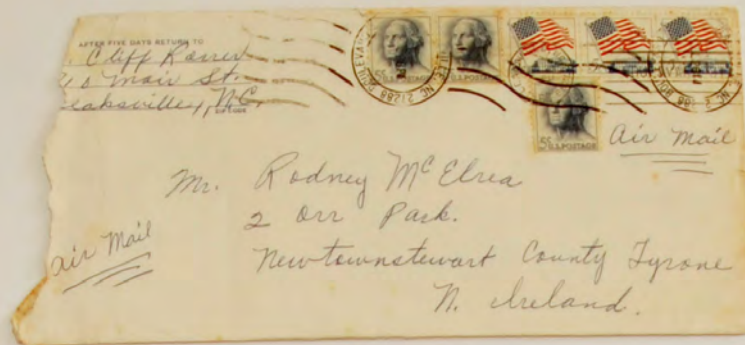 AFTER FIVE DAYS RETURN TO
Cliff
Main St.
N.C.
5c U.S.POSTAGE
U.S.POSTAGE
5c U.S.POSTAGE
Air Mail
Mr. Rodney McElrea
2 Orr Park.
Newtownstewart County Tyrone
N. Ireland.
Air Mail